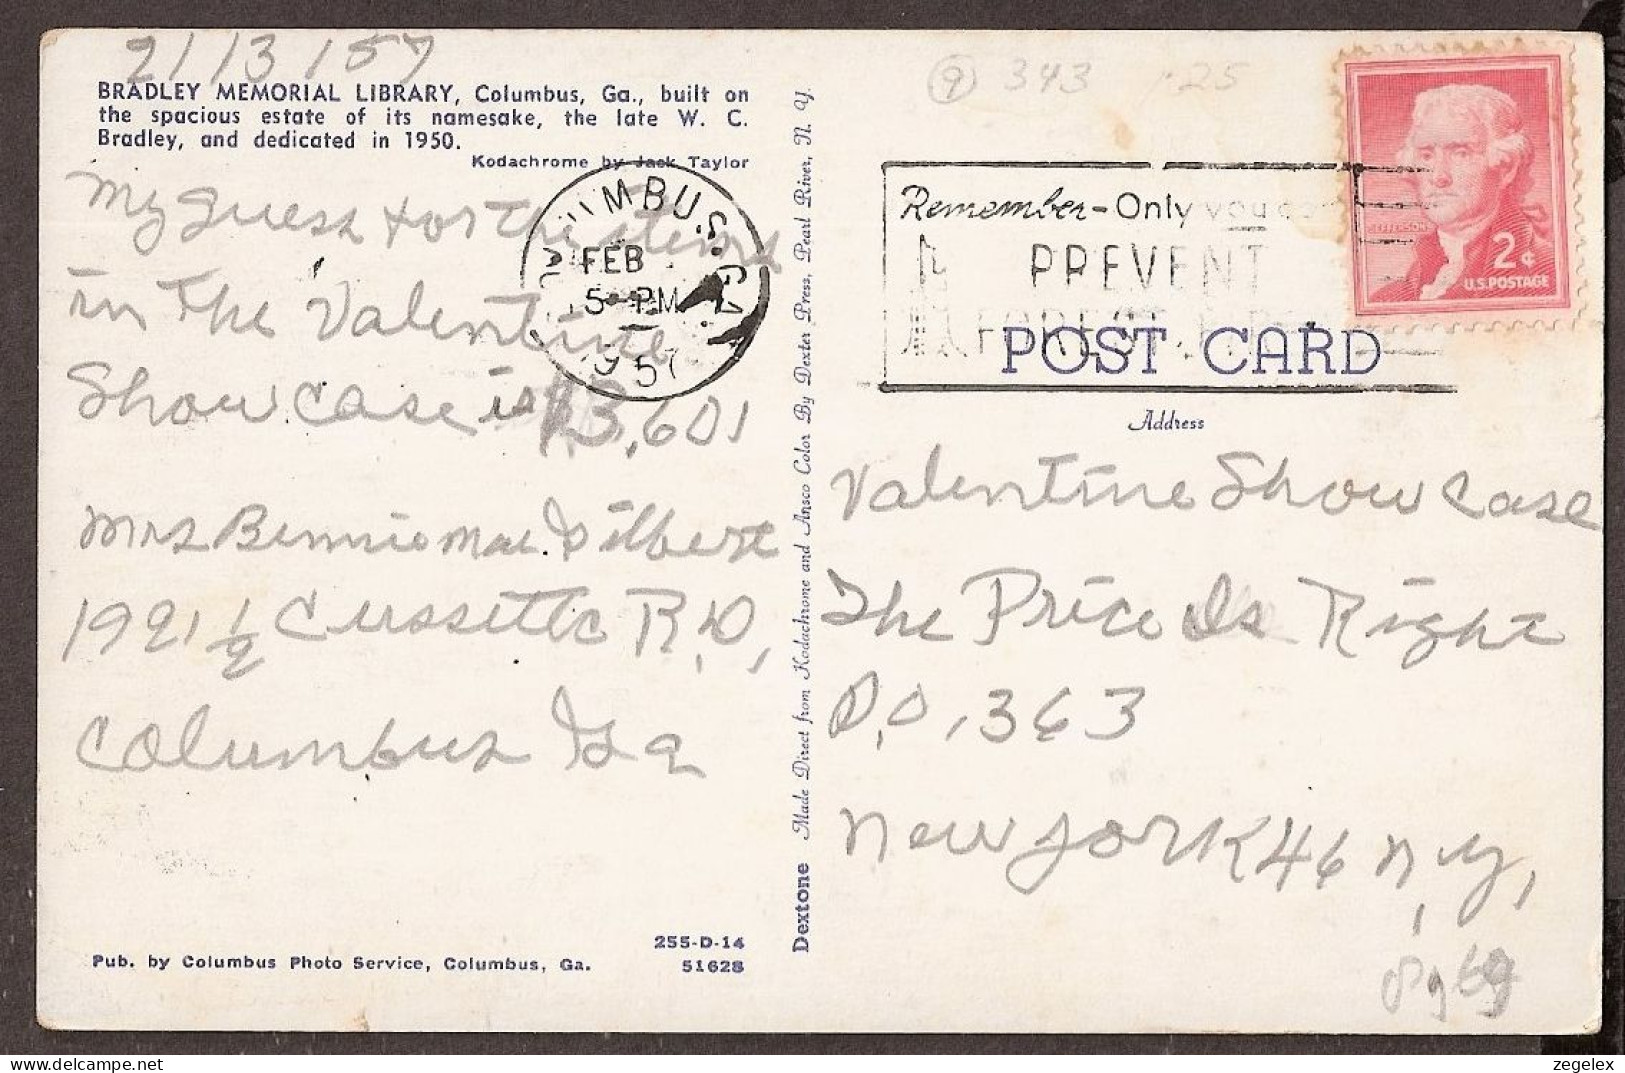 2113157
BRADLEY MEMORIAL LIBRARY, Columbus, Ga., built on
the spacious estate of its namesake, the late W. C.
Bradley, and dedicated in 1950.
Kodachrome by Jack Taylor
My guess for the items
in The Valentine
Show case is $3,601
Mrs Bennie Mae Gilbert
1921 1/2 Cussetta RD,
Columbus Ga
255-D-14
Pub. by Columbus Photo Service, Columbus, Ga.
51628
Dextone Made Direct from Kodachrome and Ansco Color By Dexter Press, Pearl River, N. Y.
UMBUS. GA.
FEB
5 - PM
1957
9 343 125
Remember - Only you can
PREVENT
FOREST FIRES
JEFFERSON
2¢
U.S. POSTAGE
POST CARD
Address
Valentine Show Case
The Price Is Right
P.O. 363
New York 46 N.Y.
zegelex